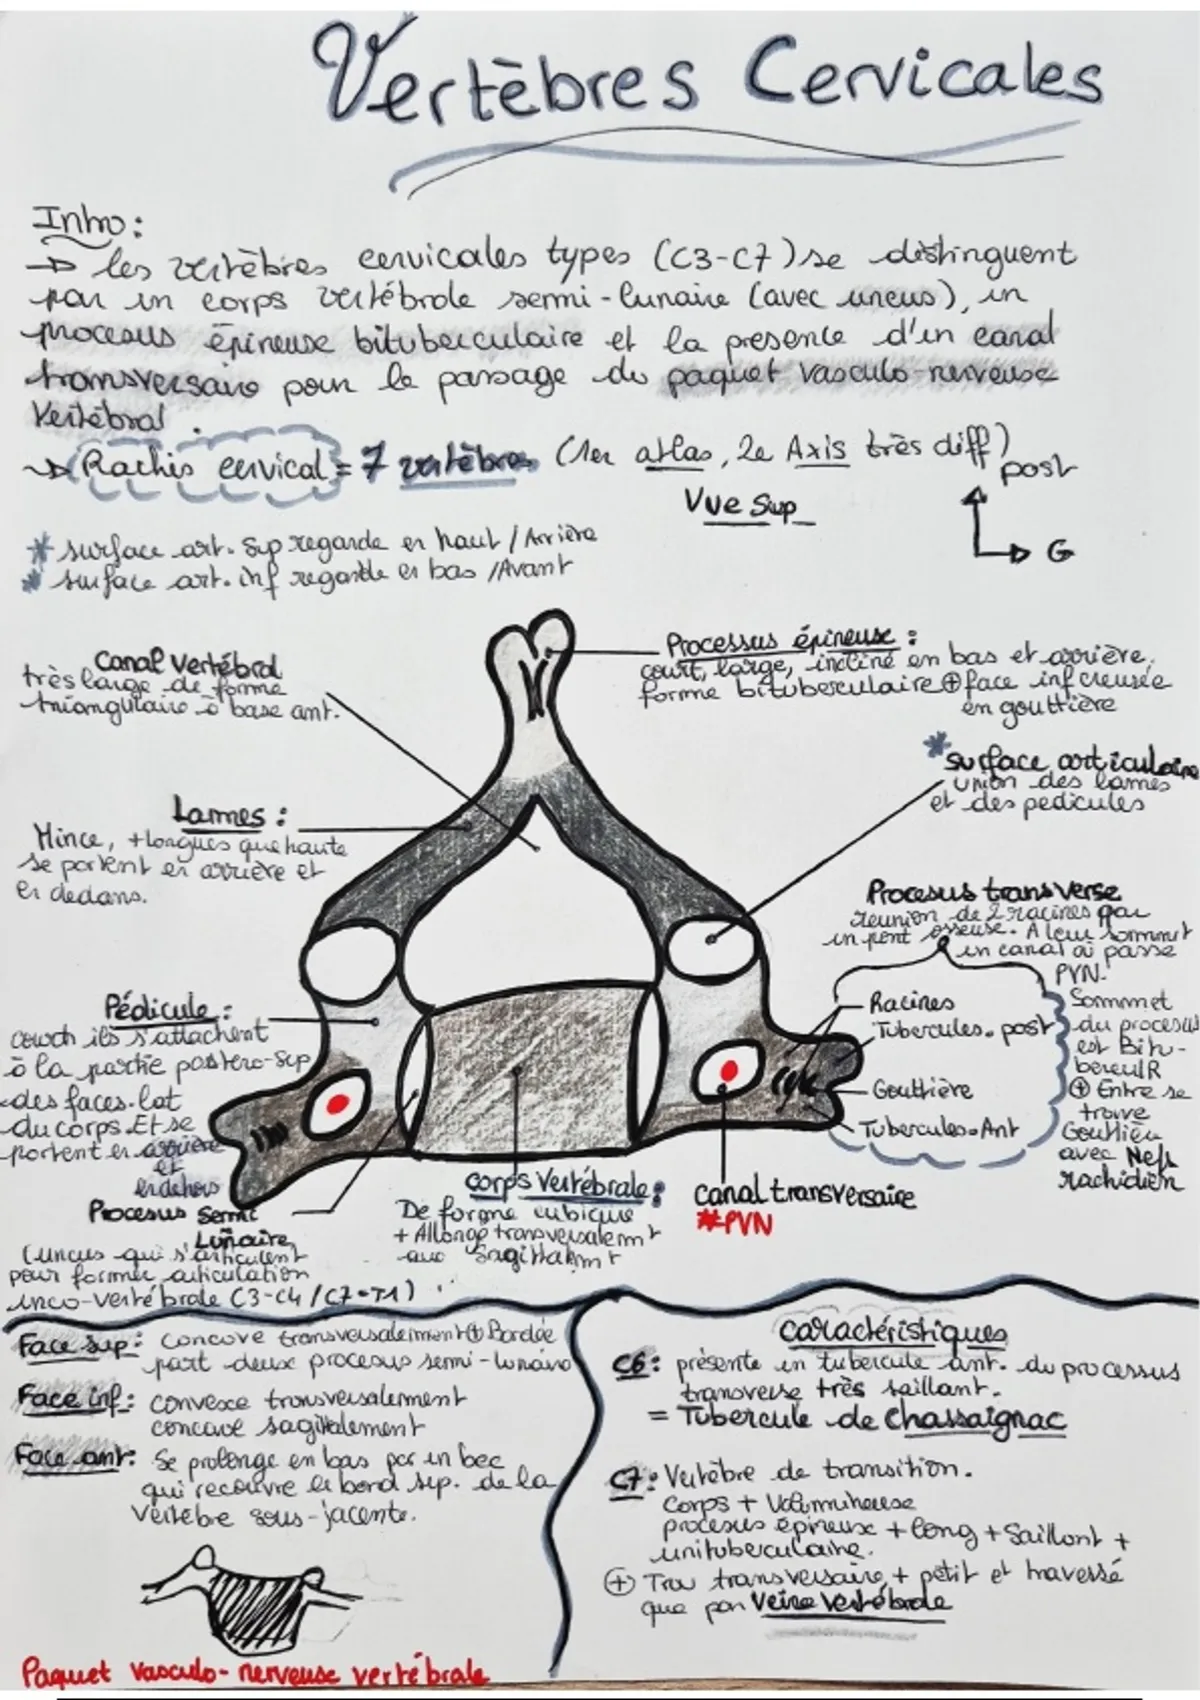 Vertèbres Cervicales
Intro:
→ les vertèbres cervicales types (C3-C7) se distinguent
par un corps vertébrale semi-lunaire (avec uncus), un
processus épineuse bituberculaire et la presence d'un canal
transversaire pour le passage du paquet vasculo-nerveuse
Vertébral.
→ Rachis cervical = 7 vertèbres (1er atlas, 2e Axis très diff)
post
Vue Sup
G
* surface art. Sup regarde en haut / Arrière
* surface art. inf regarde en bas / Avant
Canal Vertébral
très large de forme
triangulaire à base ant.
Processus épineuse :
court, large, incliné en bas et arrière,
forme bituberculaire ⊕ face inf creusée
en gouttière
* surface articulaire
union des lames
et des pedicules
Lames :
Mince, + longues que haute
se portent en arrière et
en dedans.
Procesus transverse
reunion de 2 racines par
un pont osseuse. A leur sommet
un canal où passe
PVN.
Pédicule :
court ils s'attachent
à la partie postero-sup
des faces. lat
du corps. Et se
portent en arrière
et
en dehors
Racines
Tubercules. post
Gouttière
Tubercules. Ant
Sommet
du procesus
est Bitu-
berculR
⊕ Entre se
trouve
Gouttière
avec Nefs
rachidien
Procesus Semi
Lunaire
(uncus qui s'articulent
pour former articulation
unco-vertébrale C3-C4 / C7-T1)
corps Vertébrale :
De forme cubique
+ Allongé transversalemnt
que Sagittalemnt
canal transversaire
#PVN
Face sup : Concave transversalement ⊕ Bordée
part deux procesus semi-lunaire
Face inf : convexe transversalement
concave sagitalement
Face ant : Se prolonge en bas par un bec
qui recouvre le bord sup. de la
Vertèbre sous-jacente.
Paquet vasculo-nerveuse vertébrale
caractéristiques
C6 : présente un tubercule ant. du processus
transverse très saillant.
= Tubercule de Chassaignac
C7 : Vertèbre de transition.
Corps + Volumineuse
procesus épineux + long + Saillant +
unituberculaire.
⊕ Trou transversaire + petit et traversé
que par Veine Vertébrale